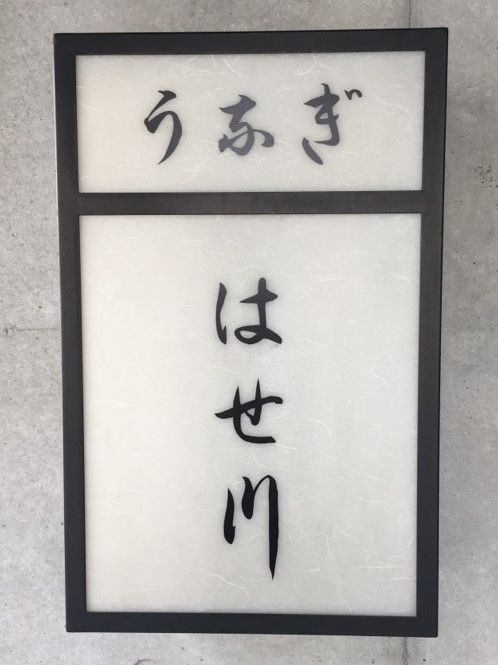 うなぎ
はせ川